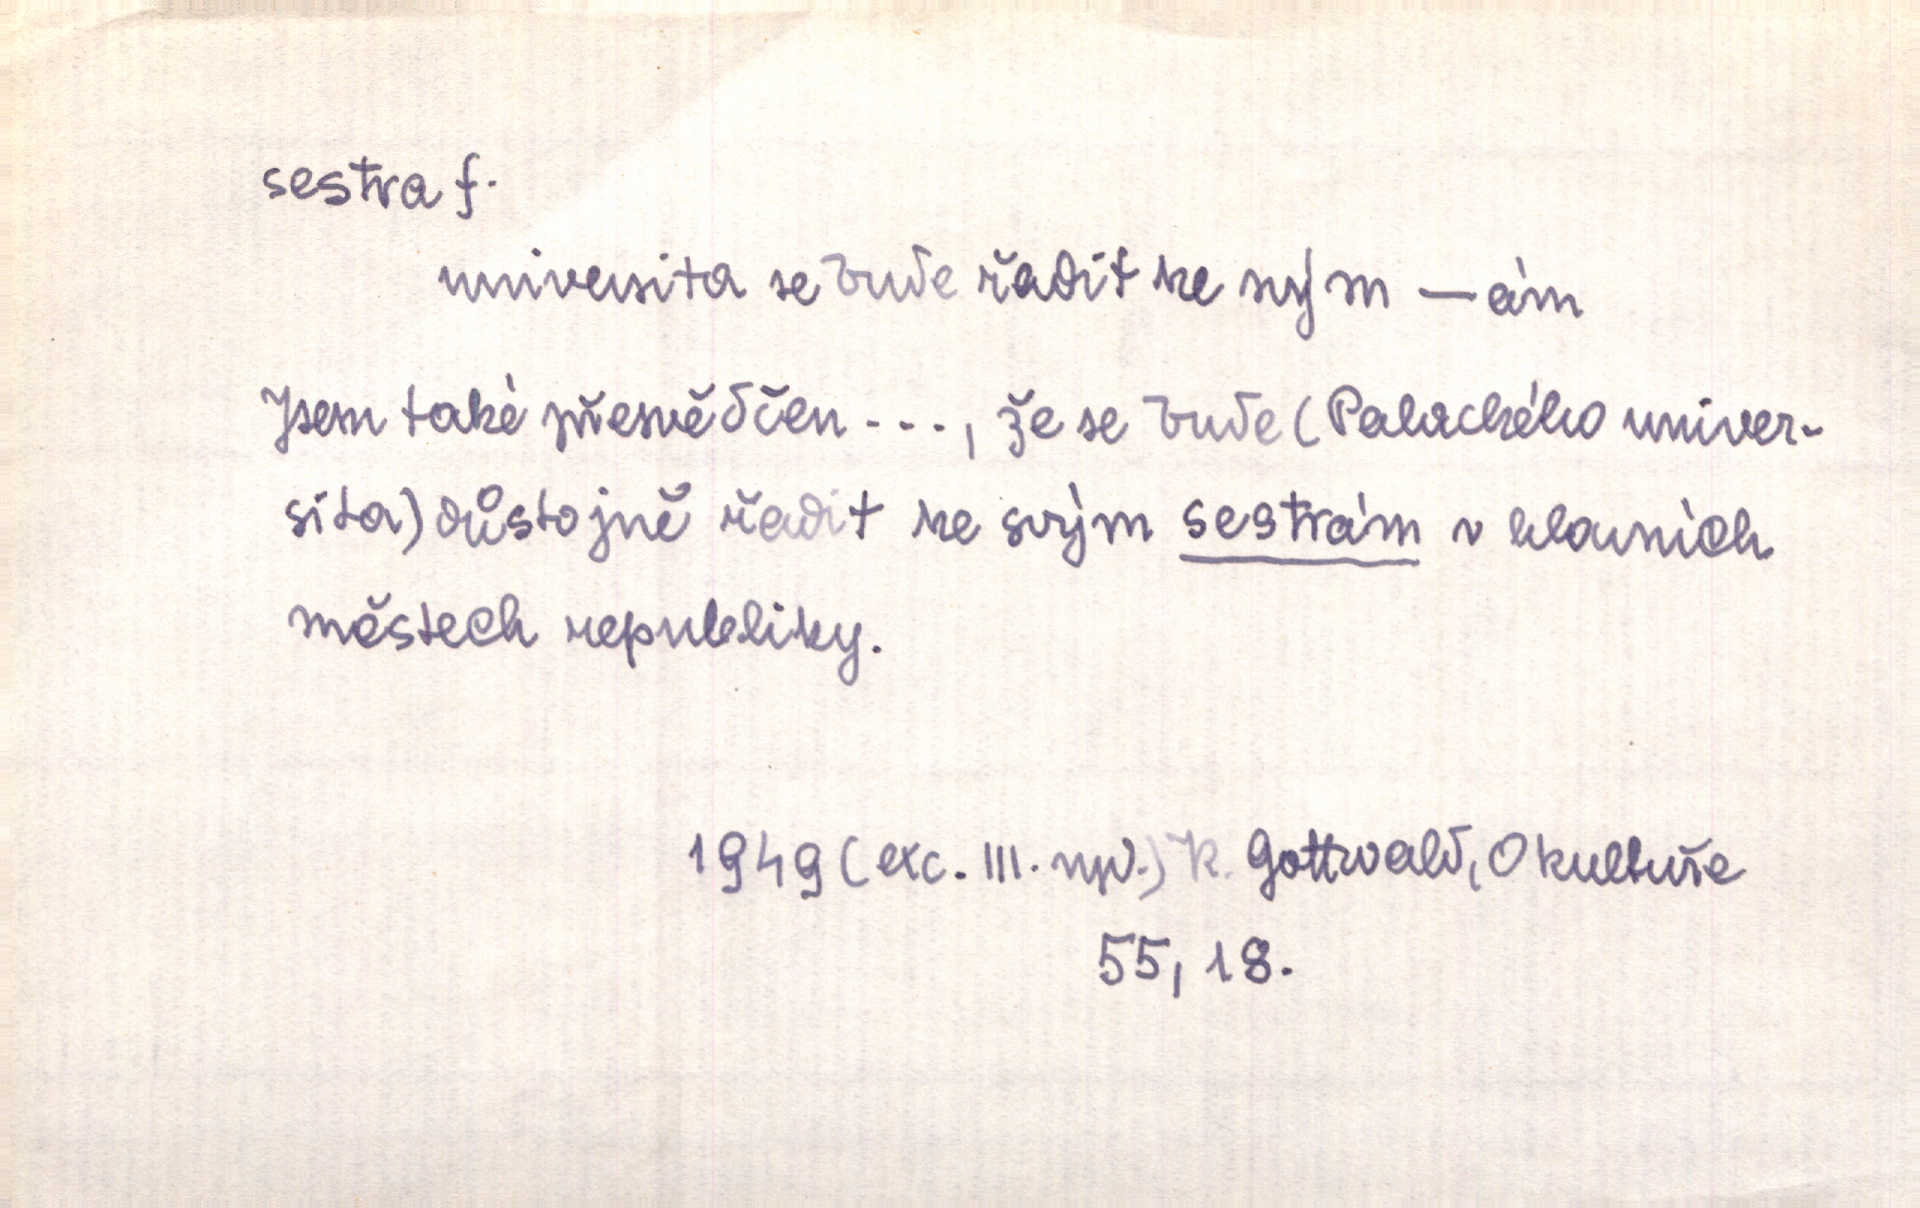 sestra f.
universita se bude řadit ke svým — ám
Jsem také přesvědčen ..., že se bude (Palackého univer-
sita) důstojně řadit ke svým sestrám v hlavních
městech republiky.
1949 (exc. III. vyd.) K. Gottwald, O kultuře
55, 18.